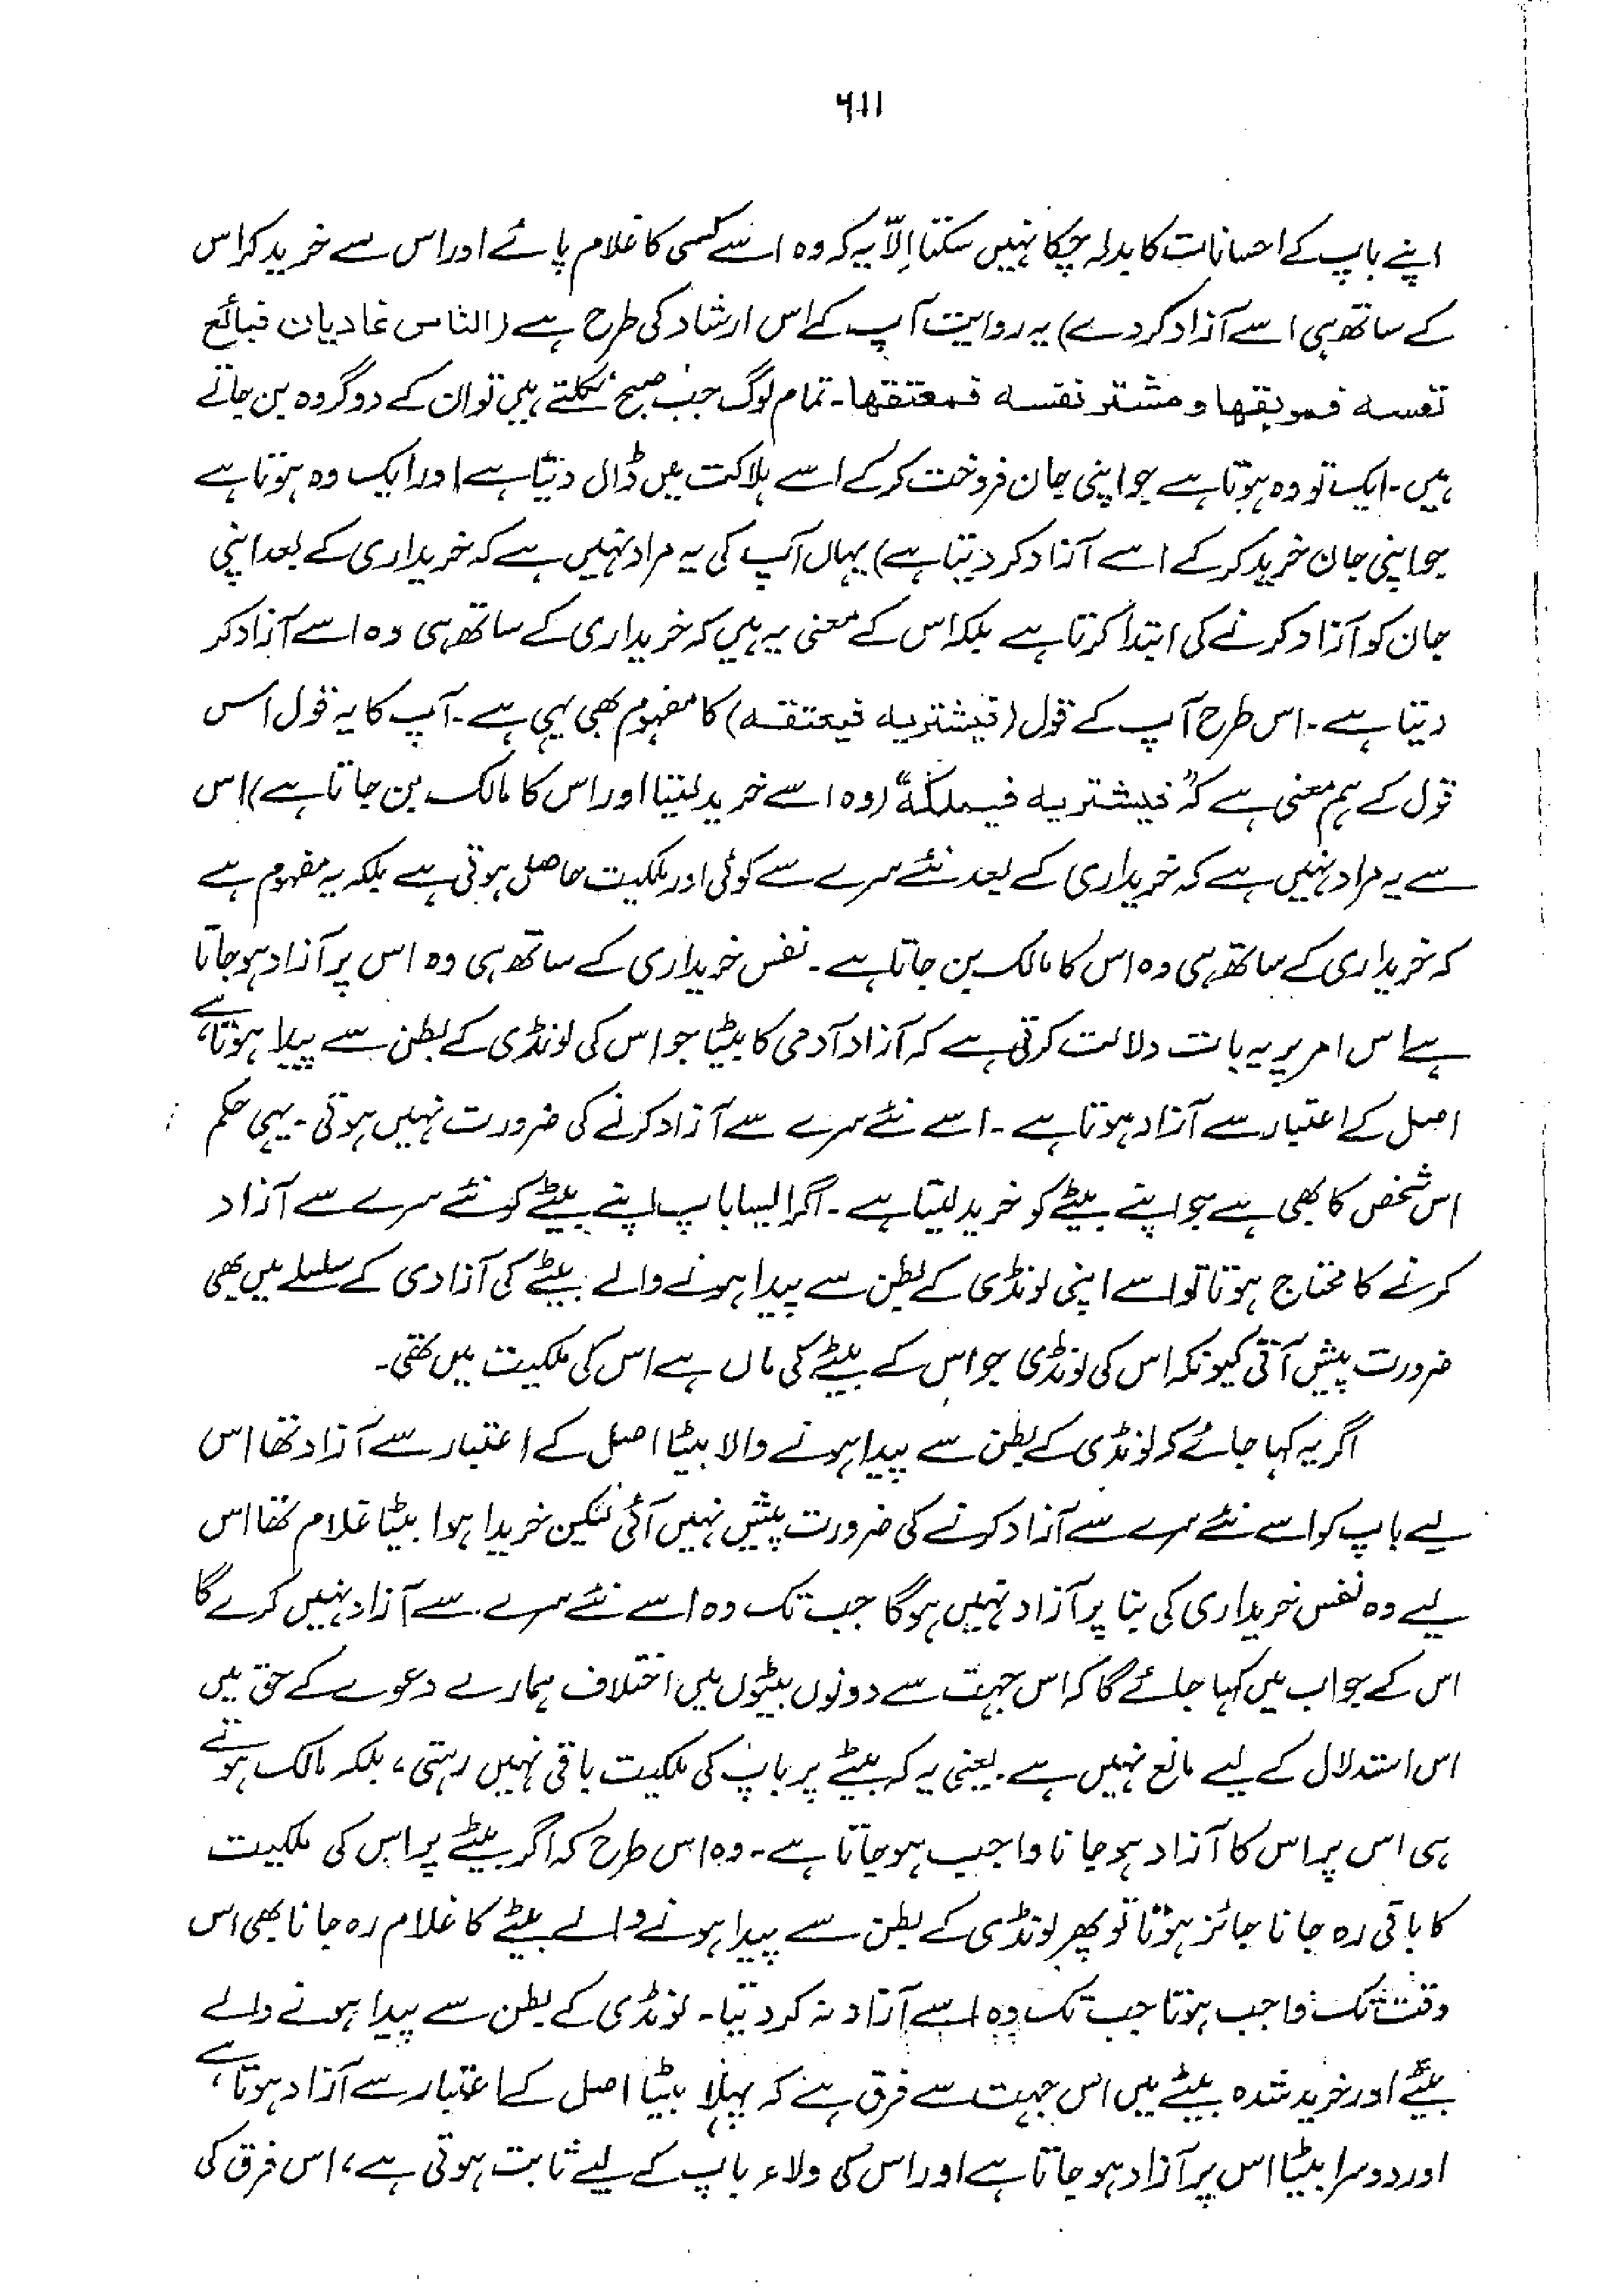 ۶۱۱
اپنے باپ کے احسانات کا بدلہ چکا نہیں سکتا اِلّا یہ کہ وہ اسے کسی کا غلام پائے اور اس سے خرید کر اس
کے ساتھ ہی اسے آزاد کر دے) یہ روایت آپ کے اس ارشاد کی طرح ہے (الناس غادیان فبائع
نفسہ فموبقھا و مشتر نفسہ فمعتقھا۔ تمام لوگ جب صبح نکلتے ہیں تو ان کے دو گروہ بن جاتے
ہیں۔ ایک تو وہ ہوتا ہے جو اپنی جان فروخت کر کے اسے ہلاکت میں ڈال دیتا ہے اور ایک وہ ہوتا ہے
جو اپنی جان خرید کر کے اسے آزاد کر دیتا ہے) یہاں آپ کی یہ مراد نہیں ہے کہ خریداری کے بعد اپنی
جان کو آزاد کرنے کی ابتدا کرتا ہے بلکہ اس کے معنی یہ ہیں کہ خریداری کے ساتھ ہی وہ اسے آزاد کر
دیتا ہے۔ اس طرح آپ کے قول (فیشتریہ فیعتقہ) کا مفہوم بھی یہی ہے۔ آپ کا یہ قول اس
قول کے ہم معنی ہے کہ "فیشتریہ فیملکہ" (وہ اسے خرید لیتا اور اس کا مالک بن جاتا ہے) اس
سے یہ مراد نہیں ہے کہ خریداری کے بعد نئے سرے سے کوئی اور ملکیت حاصل ہوتی ہے بلکہ یہ مفہوم ہے
کہ خریداری کے ساتھ ہی وہ اس کا مالک بن جاتا ہے۔ نفس خریداری کے ساتھ ہی وہ اس پر آزاد ہو جاتا
ہے اس امر پر یہ بات دلالت کرتی ہے کہ آزاد آدمی کا بیٹا جو اس کی لونڈی کے بطن سے پیدا ہوتا ہے،
اصل کے اعتبار سے آزاد ہوتا ہے۔ اسے نئے سرے سے آزاد کرنے کی ضرورت نہیں ہوتی۔ یہی حکم
اس شخص کا بھی ہے جو اپنے بیٹے کو خرید لیتا ہے۔ اگر ایسا باپ اپنے بیٹے کو نئے سرے سے آزاد
کرنے کا محتاج ہوتا تو اسے اپنی لونڈی کے بطن سے پیدا ہونے والے بیٹے کی آزادی کے سلسلے میں بھی
ضرورت پیش آتی کیونکہ اس کی لونڈی جو اس کے بیٹے کی ماں ہے اس کی ملکیت میں تھی۔
اگر یہ کہا جائے کہ لونڈی کے بطن سے پیدا ہونے والا بیٹا اصل کے اعتبار سے آزاد تھا اس
لیے باپ کو اسے نئے سرے سے آزاد کرنے کی ضرورت پیش نہیں آئی لیکن خریدا ہوا بیٹا غلام تھا اس
لیے وہ نفس خریداری کی بنا پر آزاد نہیں ہوگا جب تک وہ اسے نئے سرے سے آزاد نہیں کرے گا
اس کے جواب میں کہا جائے گا کہ اس جہت سے دونوں بیٹوں میں اختلاف ہمارے دعوے کے حق میں
اس استدلال کے لیے مانع نہیں ہے۔ یعنی یہ کہ بیٹے پر باپ کی ملکیت باقی نہیں رہتی، بلکہ مالک ہوتے
ہی اس پر اس کا آزاد ہو جانا واجب ہو جاتا ہے۔ وہ اس طرح کہ اگر بیٹے پر اس کی ملکیت
کا باقی رہ جانا جائز ہوتا تو پھر لونڈی کے بطن سے پیدا ہونے والے بیٹے کا غلام رہ جانا بھی اس
وقت تک واجب ہوتا جب تک وہ اسے آزاد نہ کر دیتا۔ لونڈی کے بطن سے پیدا ہونے والے
بیٹے اور خرید شدہ بیٹے میں اس جہت سے فرق ہے کہ پہلا بیٹا اصل کے اعتبار سے آزاد ہوتا ہے،
اور دوسرا بیٹا اس پر آزاد ہو جاتا ہے اور اس کی ولاء باپ کے لیے ثابت ہوتی ہے، اس فرق کی